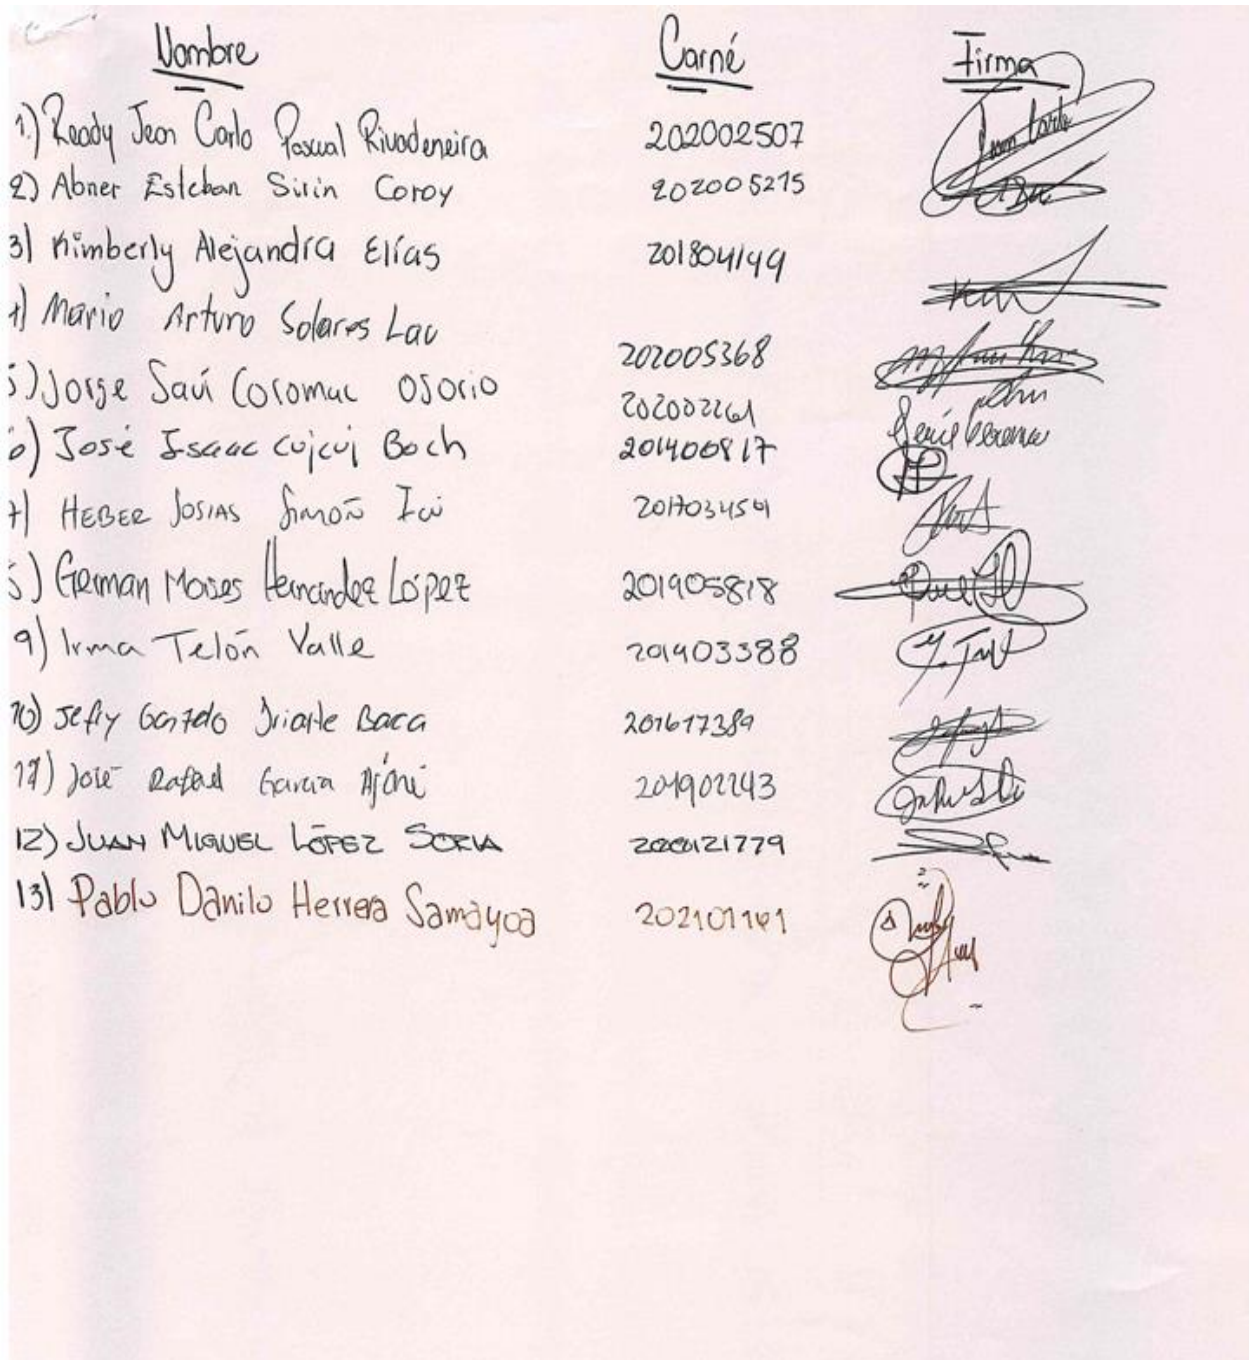 Nombre Carné Firma
1.) Ready Jean Carlo Pascual Rivadeneira 202002507 Jean Carlo
2) Abner Esteban Sirin Coroy 202005215
3) Kimberly Alejandra Elías 201804149
4) Mario Arturo Solares Lau 202005368
5) Jorge Saví Coromac Osorio 202002261
6) José Isaac Cujcuj Boch 201400817
7) HEBER JOSIAS Simón
8) German Moises Hernández López 201905818
9) Irma Telón Valle 201403388
10) Jefry Iriarte Baca 201617389
11) José Rafael García 201902243
12) JUAN MIGUEL LÓPEZ SORIA
13) Pablo Danilo Herrera Samayoa